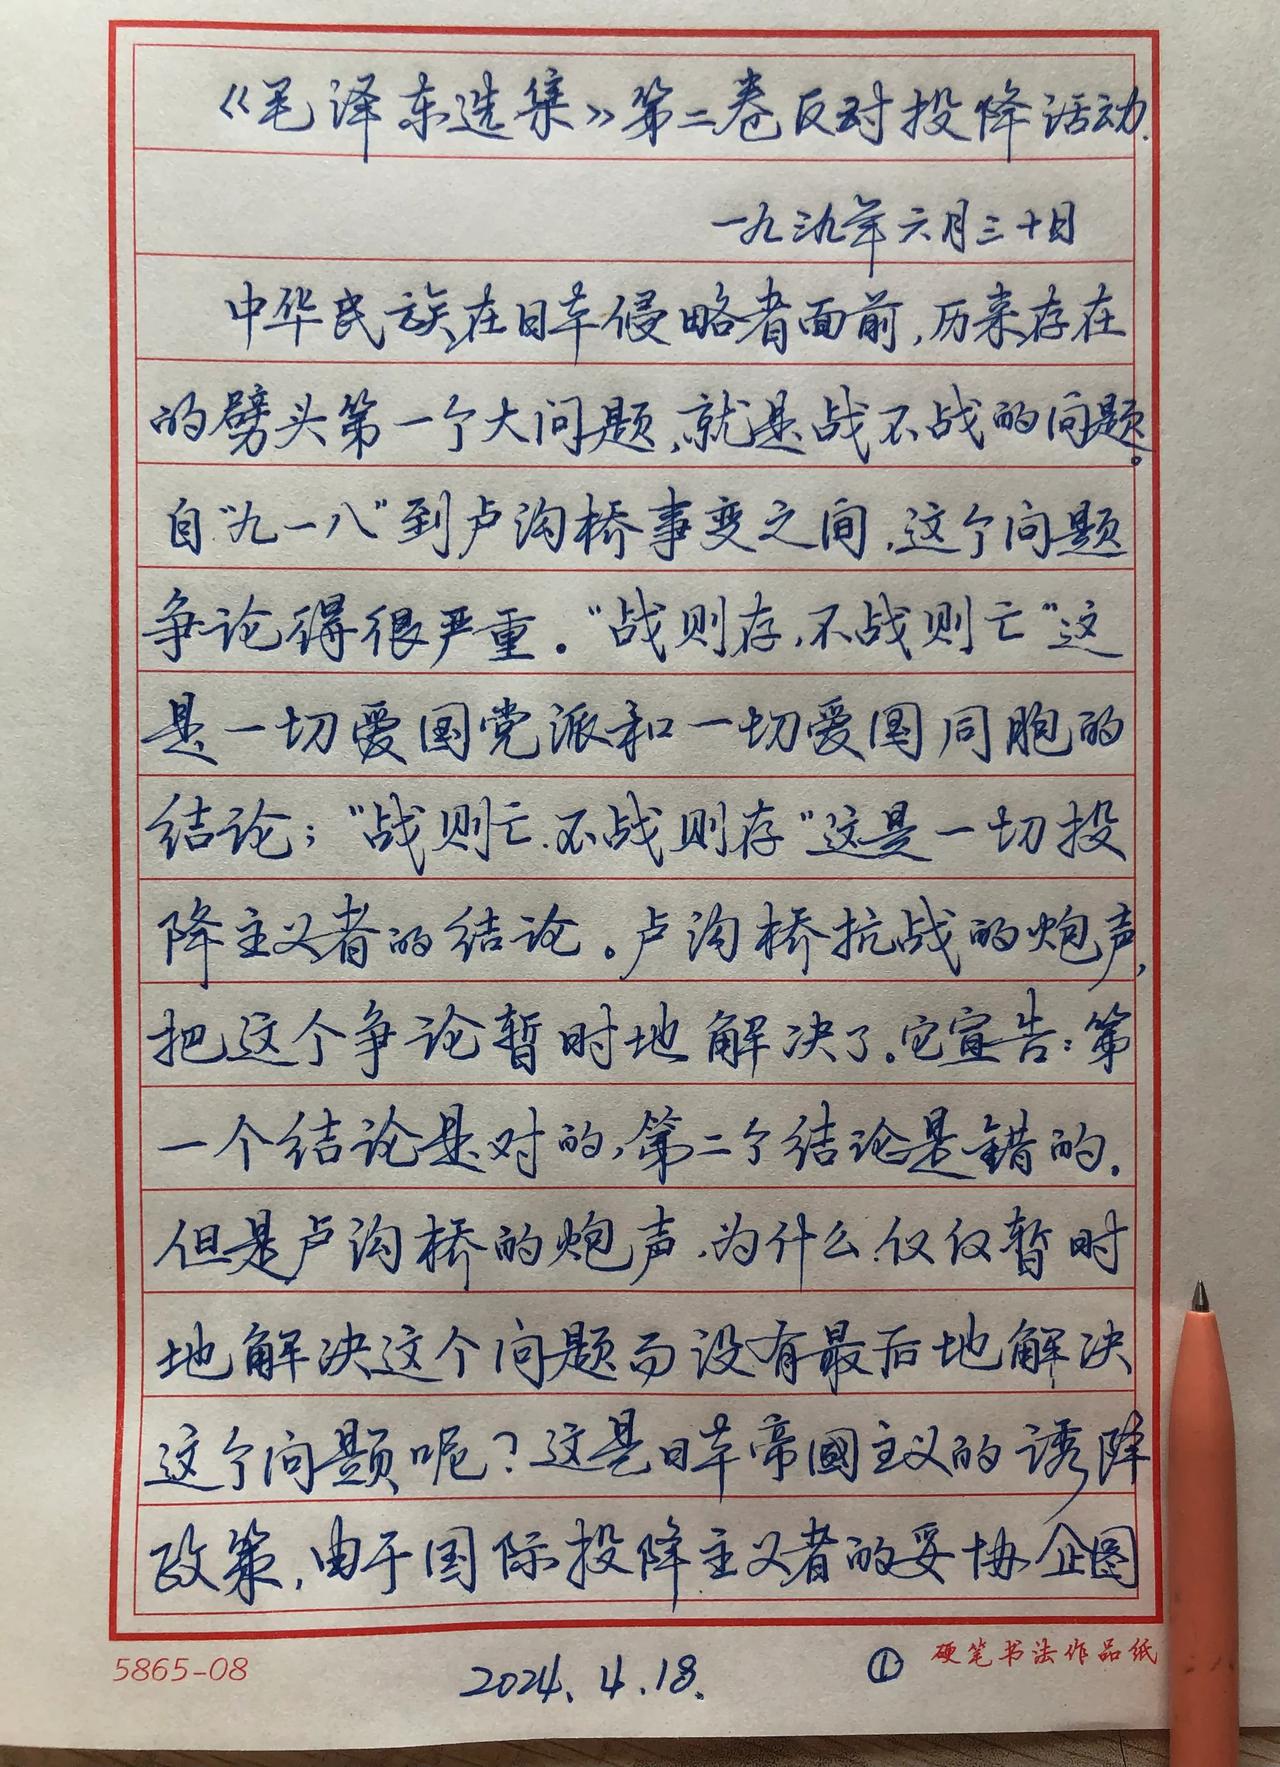 《毛泽东选集》第二卷反对投降活动.
一九三九年六月三十日
中华民族在日本侵略者面前,历来存在
的劈头第一个大问题,就是战不战的问题。
自"九一八"到卢沟桥事变之间,这个问题
争论得很严重。"战则存,不战则亡"这
是一切爱国党派和一切爱国同胞的
结论;"战则亡.不战则存"这是一切投
降主义者的结论。卢沟桥抗战的炮声,
把这个争论暂时地解决了。它宣告:第
一个结论是对的,第二个结论是错的.
但是卢沟桥的炮声.为什么仅仅暂时
地解决这个问题而没有最后地解决
这个问题呢?这是日本帝國主义的诱降
政策,由于国际投降主义者的妥协企图
5865-08
2024.4.18.
①
硬笔书法作品纸